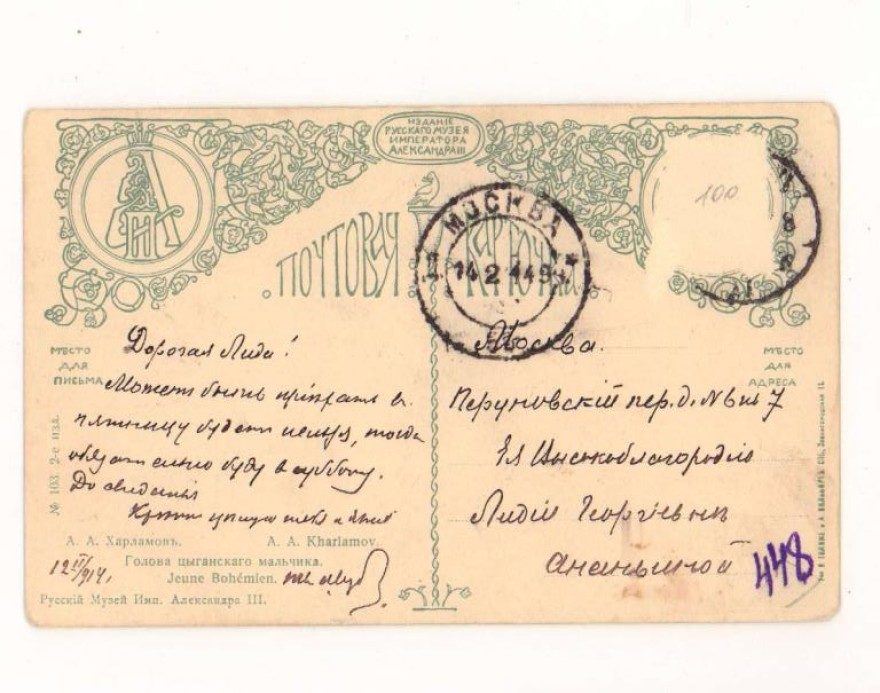 ИЗДАНІЕ
РУССКАГО МУЗЕЯ
ИМПЕРАТОРА
АЛЕКСАНДРА III
100
МОСКВА
14 2 14
8
ПОЧТОВАЯ КАРТОЧКА
МѢСТО
ДЛЯ
ПИСЬМА
Дорогая Лида!
Можетъ быть пріѣхать въ
пятницу будетъ нельзя, тогда
обязательно буду въ субботу.
До свиданія
Крѣпко цѣлую
12 II/914.
№ 103 2-е изд.
А. А. Харламовъ. A. A. Kharlamov.
Голова цыганскаго мальчика.
Jeune Bohémien.
Русскій Музей Имп. Александра III.
МѢСТО
ДЛЯ
АДРЕСА
Москва.
Перуновскій пер. д. № 7
Ея Высокоблагородію
Лидіи Георгіевнѣ
Ананьиной
448